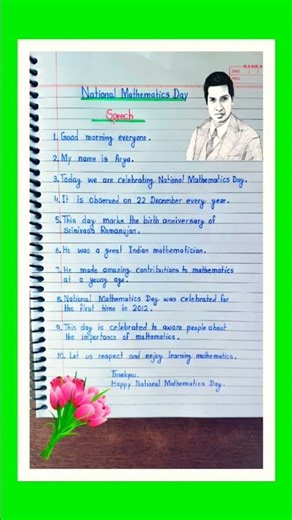 National Mathematics Day
Speech
1. Good morning everyone.
2. My name is Arya.
3. Today we are celebrating National Mathematics Day.
4. It is observed on 22 December every year.
5. This day marks the birth anniversary of
Srinivasa Ramanujan.
6. He was a great Indian mathematician.
7. He made amazing contributions to mathematics
at a young age.
8. National Mathematics Day was celebrated for
the first time in 2012.
9. This day is celebrated to aware people about
the importance of mathematics.
10. Let us respect and enjoy learning mathematics.
Thankyou.
Happy National Mathematics Day.